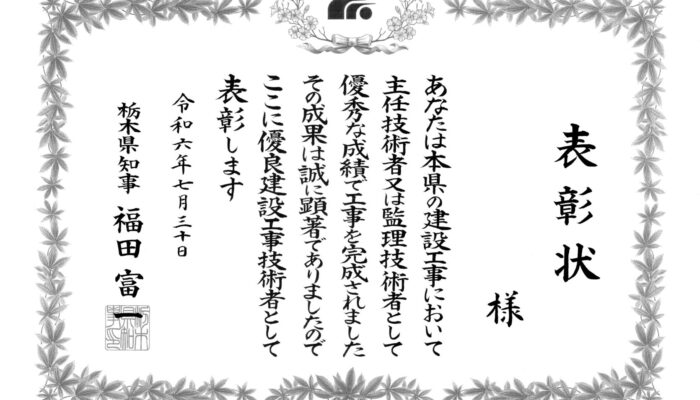 表彰状
様
あなたは本県の建設工事において
主任技術者又は監理技術者として
優秀な成績で工事を完成されました
その成果は誠に顕著でありましたので
ここに優良建設工事技術者として
表彰します
令和六年七月三十日
栃木県知事 福田富一